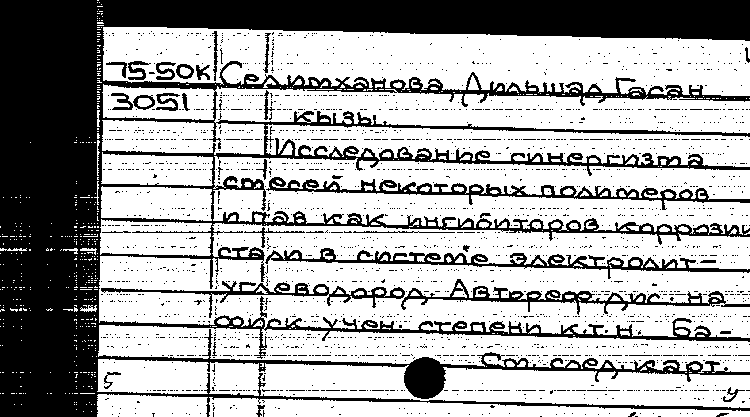 75-50к Селимханова, Дильшад Гасан
3051 кызы.
Исследование синергизма
смесей некоторых полимеров
и пав как ингибиторов коррозии
стали в системе электролит-
углеводород. Автореф. дис. на
соиск учен. степени к.т.н. Ба-
См. след. карт.
5
у